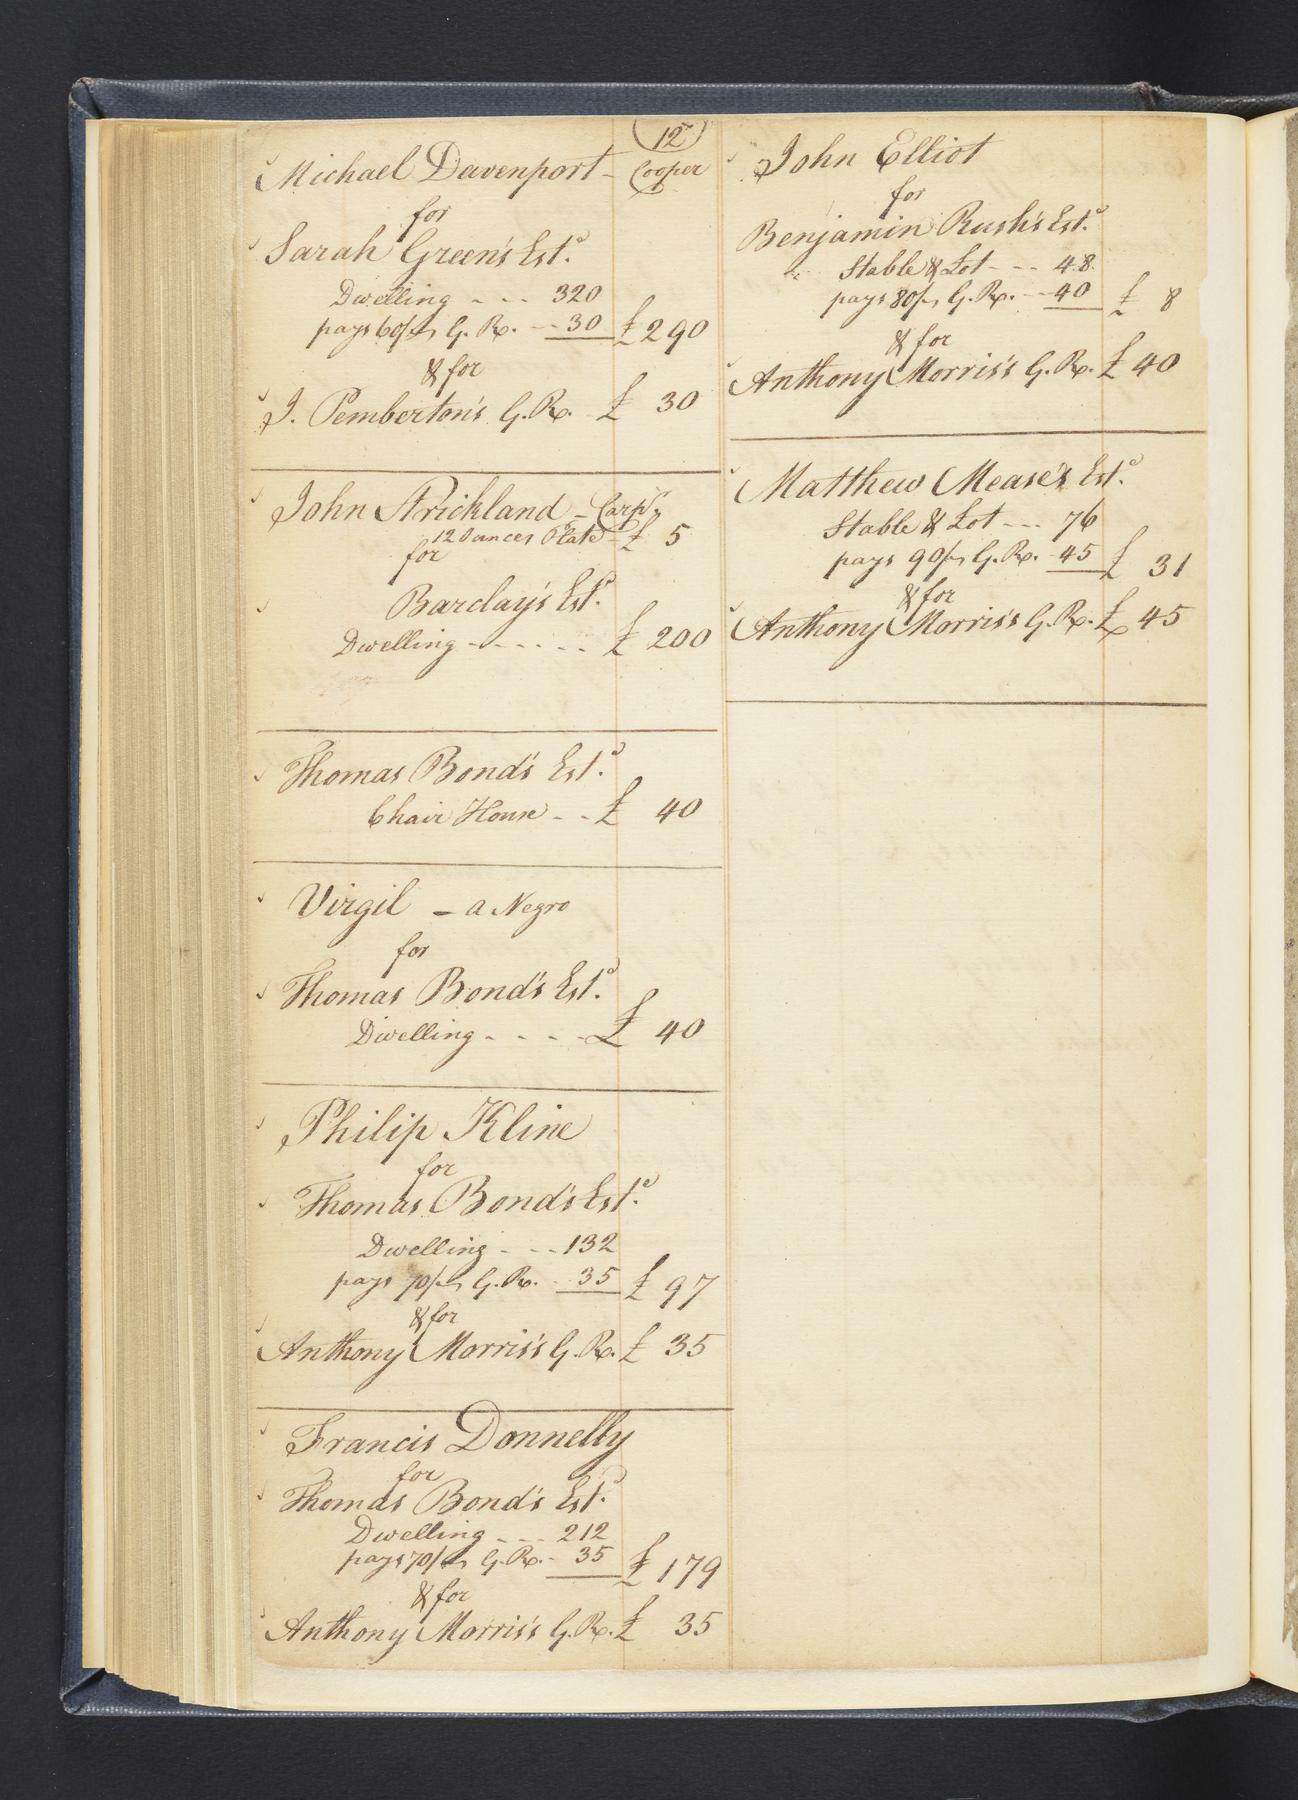 12
Michael Davenport - Cooper
for
Sarah Green's Est.e
Dwelling - - - 320
pays 60/ G. R. - - 30 £ 290
& for
J. Pemberton's G. R. £ 30
John Strickland - Carpr.
12 Ounces Plate - £ 5
for
Barclay's Est.e
Dwelling - - - - - - £ 200
Thomas Bond's Est.e
Chair House - - £ 40
Virgil - a Negro
for
Thomas Bond's Est.e
Dwelling - - - - £ 40
Philip Kline
for
Thomas Bond's Est.e
Dwelling - - - 132
pays 70/ G. R. - 35 £ 97
& for
Anthony Morris's G. R. £ 35
Francis Donnelly
for
Thomas Bond's Est.e
Dwelling - - - 212
pays 70/ G. R. - 35 £ 179
& for
Anthony Morris's G. R. £ 35
John Elliot
for
Benjamin Rush's Est.e
Stable & Lot - - - 48
pays 80/ G. R. - - 40 £ 8
& for
Anthony Morris's G. R. £ 40
Matthew Mease's Est.e
Stable & Lot - - - 76
pays 90/ G. R. - 45 £ 31
& for
Anthony Morris's G. R. £ 45